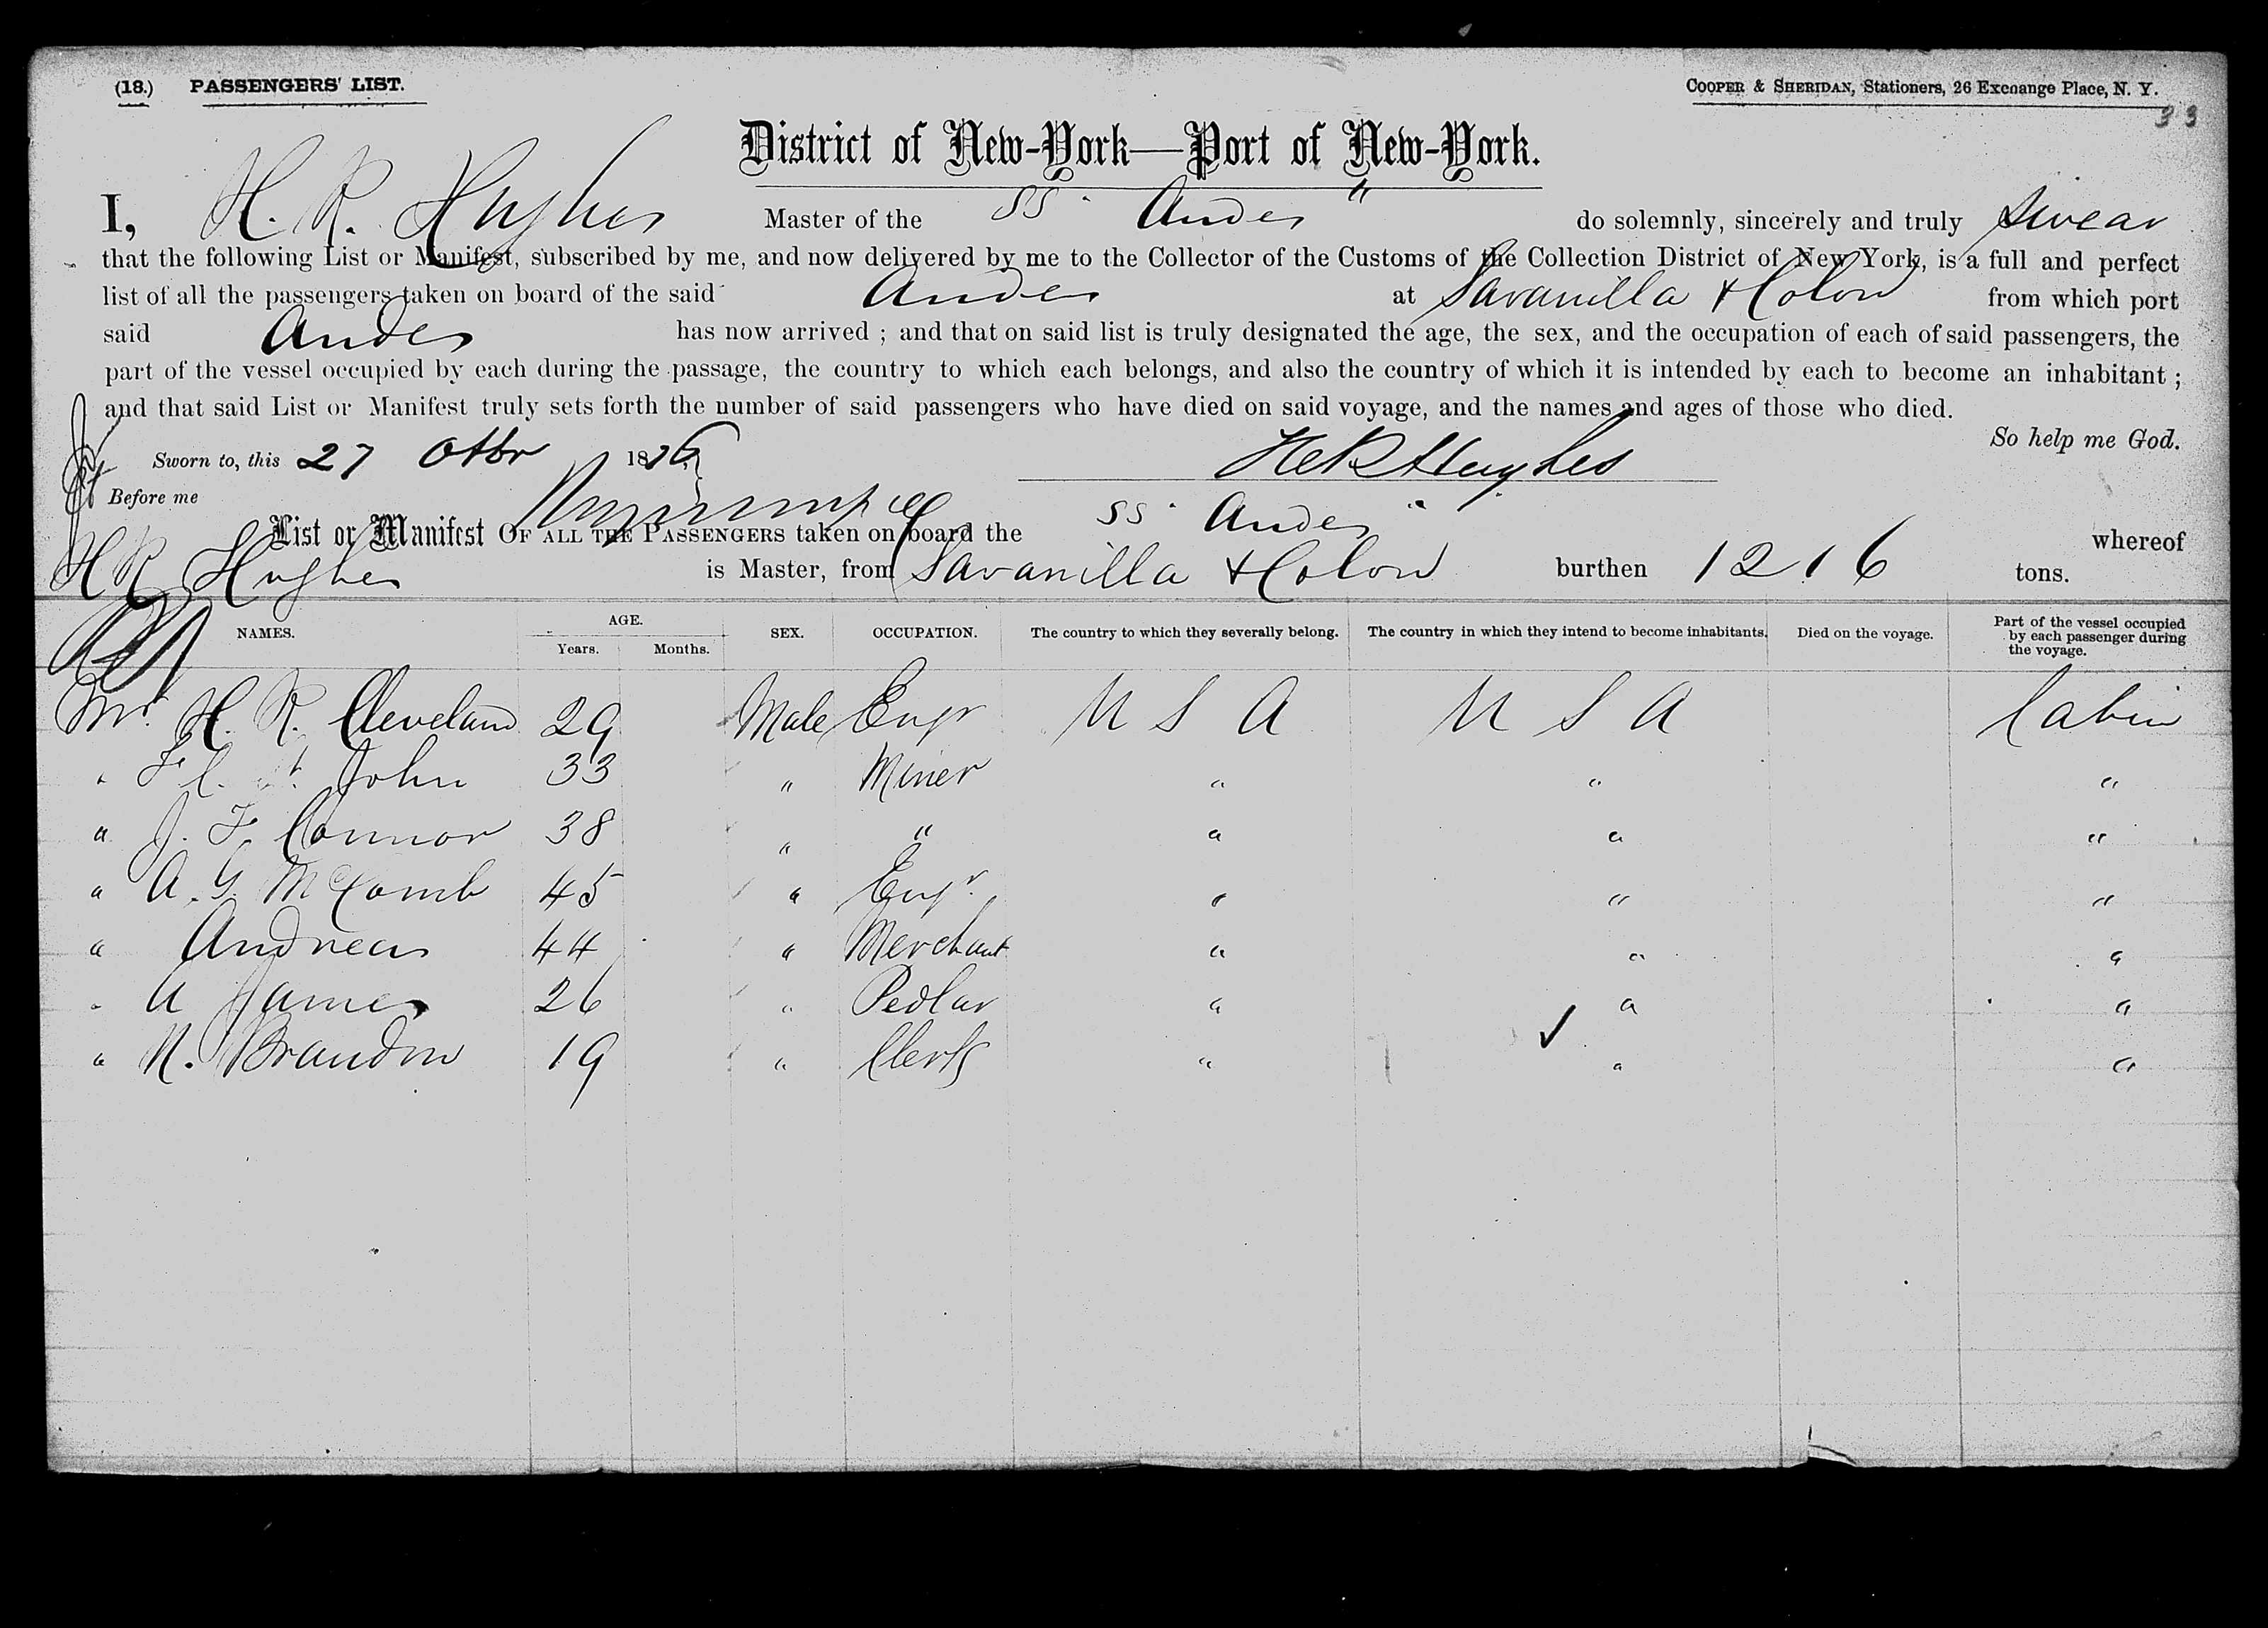 (18.) PASSENGERS' LIST.
COOPER & SHERIDAN, Stationers, 26 Exchange Place, N. Y.
33
District of New-York—Port of New-York.
I, H. R. Hughes Master of the SS "Andes" do solemnly, sincerely and truly swear
that the following List or Manifest, subscribed by me, and now delivered by me to the Collector of the Customs of the Collection District of New York, is a full and perfect
list of all the passengers taken on board of the said Andes at Savanilla & Colon from which port
said Andes has now arrived ; and that on said list is truly designated the age, the sex, and the occupation of each of said passengers, the
part of the vessel occupied by each during the passage, the country to which each belongs, and also the country of which it is intended by each to become an inhabitant ;
and that said List or Manifest truly sets forth the number of said passengers who have died on said voyage, and the names and ages of those who died.
So help me God.
Sworn to, this 27 Octbr 1876 H R Hughes
Before me
List or Manifest OF ALL THE PASSENGERS taken on board the SS "Andes" whereof
H R Hughes is Master, from Savanilla & Colon burthen 1216 tons.
NAMES. AGE. Years. Months. SEX. OCCUPATION. The country to which they severally belong. The country in which they intend to become inhabitants. Died on the voyage. Part of the vessel occupied by each passenger during the voyage.
Mr. H. R. Cleveland 29 Male Engr U S A U S A Cabin
" F. C. St. John 33 " Miner " " "
" J. F. Connor 38 " " " " "
" A. G. McComb 45 " Engr. " " "
" Andreas 44 " Merchant " " "
" A James 26 " Pedlar " " "
" N. Brandon 19 " Clerk " " "